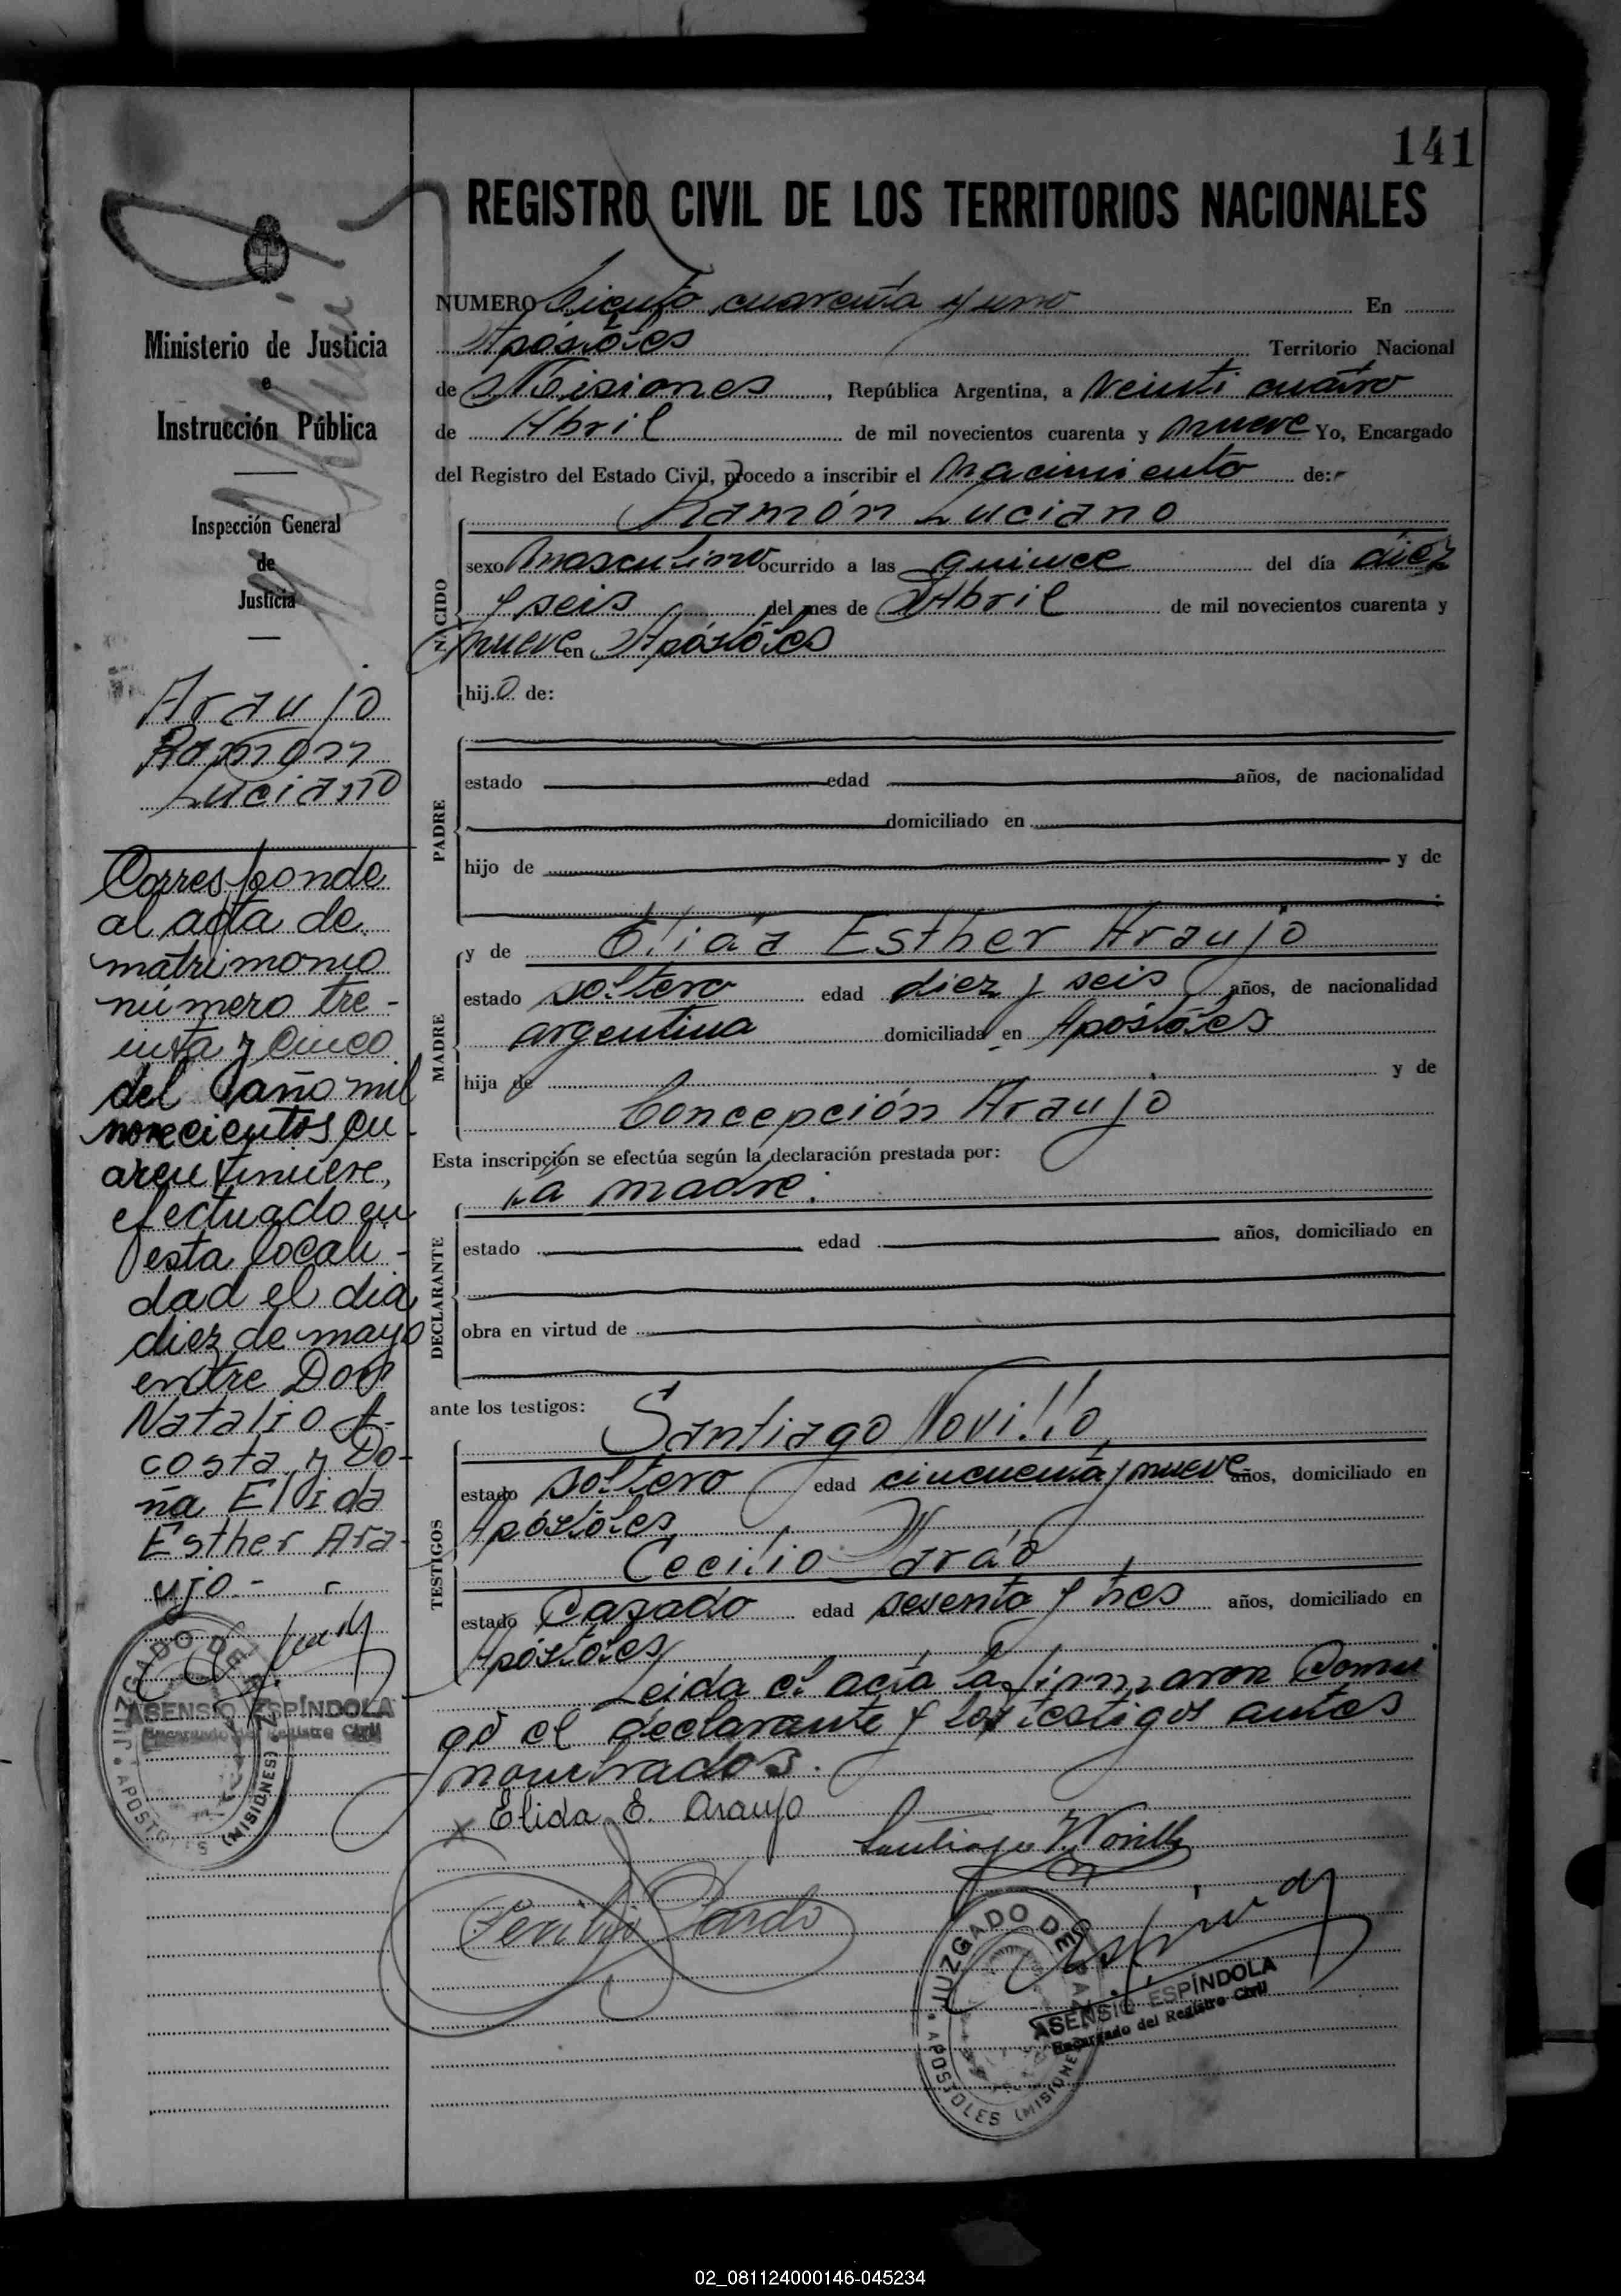 141
REGISTRO CIVIL DE LOS TERRITORIOS NACIONALES
Ministerio de Justicia
e
Instrucción Pública
Inspección General
de
Justicia
Araujo
Ramón
Luciano
Corresponde
al acta de
matrimonio
número tre-
inta y cinco
del año mil
novecientos cu
arentinueve,
efectuado en
esta locali-
dad el dia
diez de mayo
entre Don
Natalio A-
costa y Do-
ña Elida
Esther Ara-
ujo.-
JUZGADO DE
APOSTOLES (MISIONES)
ASENSIO ESPÍNDOLA
Encargado del Registro Civil
NUMERO Ciento cuarenta y uno En
Apóstoles Territorio Nacional
de Misiones, República Argentina, a veinti cuatro
de Abril de mil novecientos cuarenta y nueve Yo, Encargado
del Registro del Estado Civil, procedo a inscribir el nacimiento de:
Ramón Luciano
NACIDO
sexo masculino ocurrido a las quince del día diez
y seis del mes de Abril de mil novecientos cuarenta y
nueve en Apóstoles
hij.o de:
PADRE
estado edad años, de nacionalidad
domiciliado en
hijo de y de
MADRE
y de Elida Esther Araujo
estado soltera edad diez y seis años, de nacionalidad
argentina domiciliada en Apóstoles
hija de y de
Concepción Araujo
Esta inscripción se efectúa según la declaración prestada por:
la madre.
DECLARANTE
estado edad años, domiciliado en
obra en virtud de
ante los testigos:
TESTIGOS
Santiago Novillo,
estado soltero edad cincuenta y nueve años, domiciliado en
Apóstoles
Cecilio
estado Casado edad sesenta y tres años, domiciliado en
Apóstoles
Leida el acta la firmaron Conmi
go el declarante y los testigos antes
nombrados.
x Elida E. Araujo
Santiago Novillo
JUZGADO DE PAZ
APOSTOLES (MISIONES)
ASENSIO ESPÍNDOLA
Encargado del Registro Civil
02_081124000146-045234